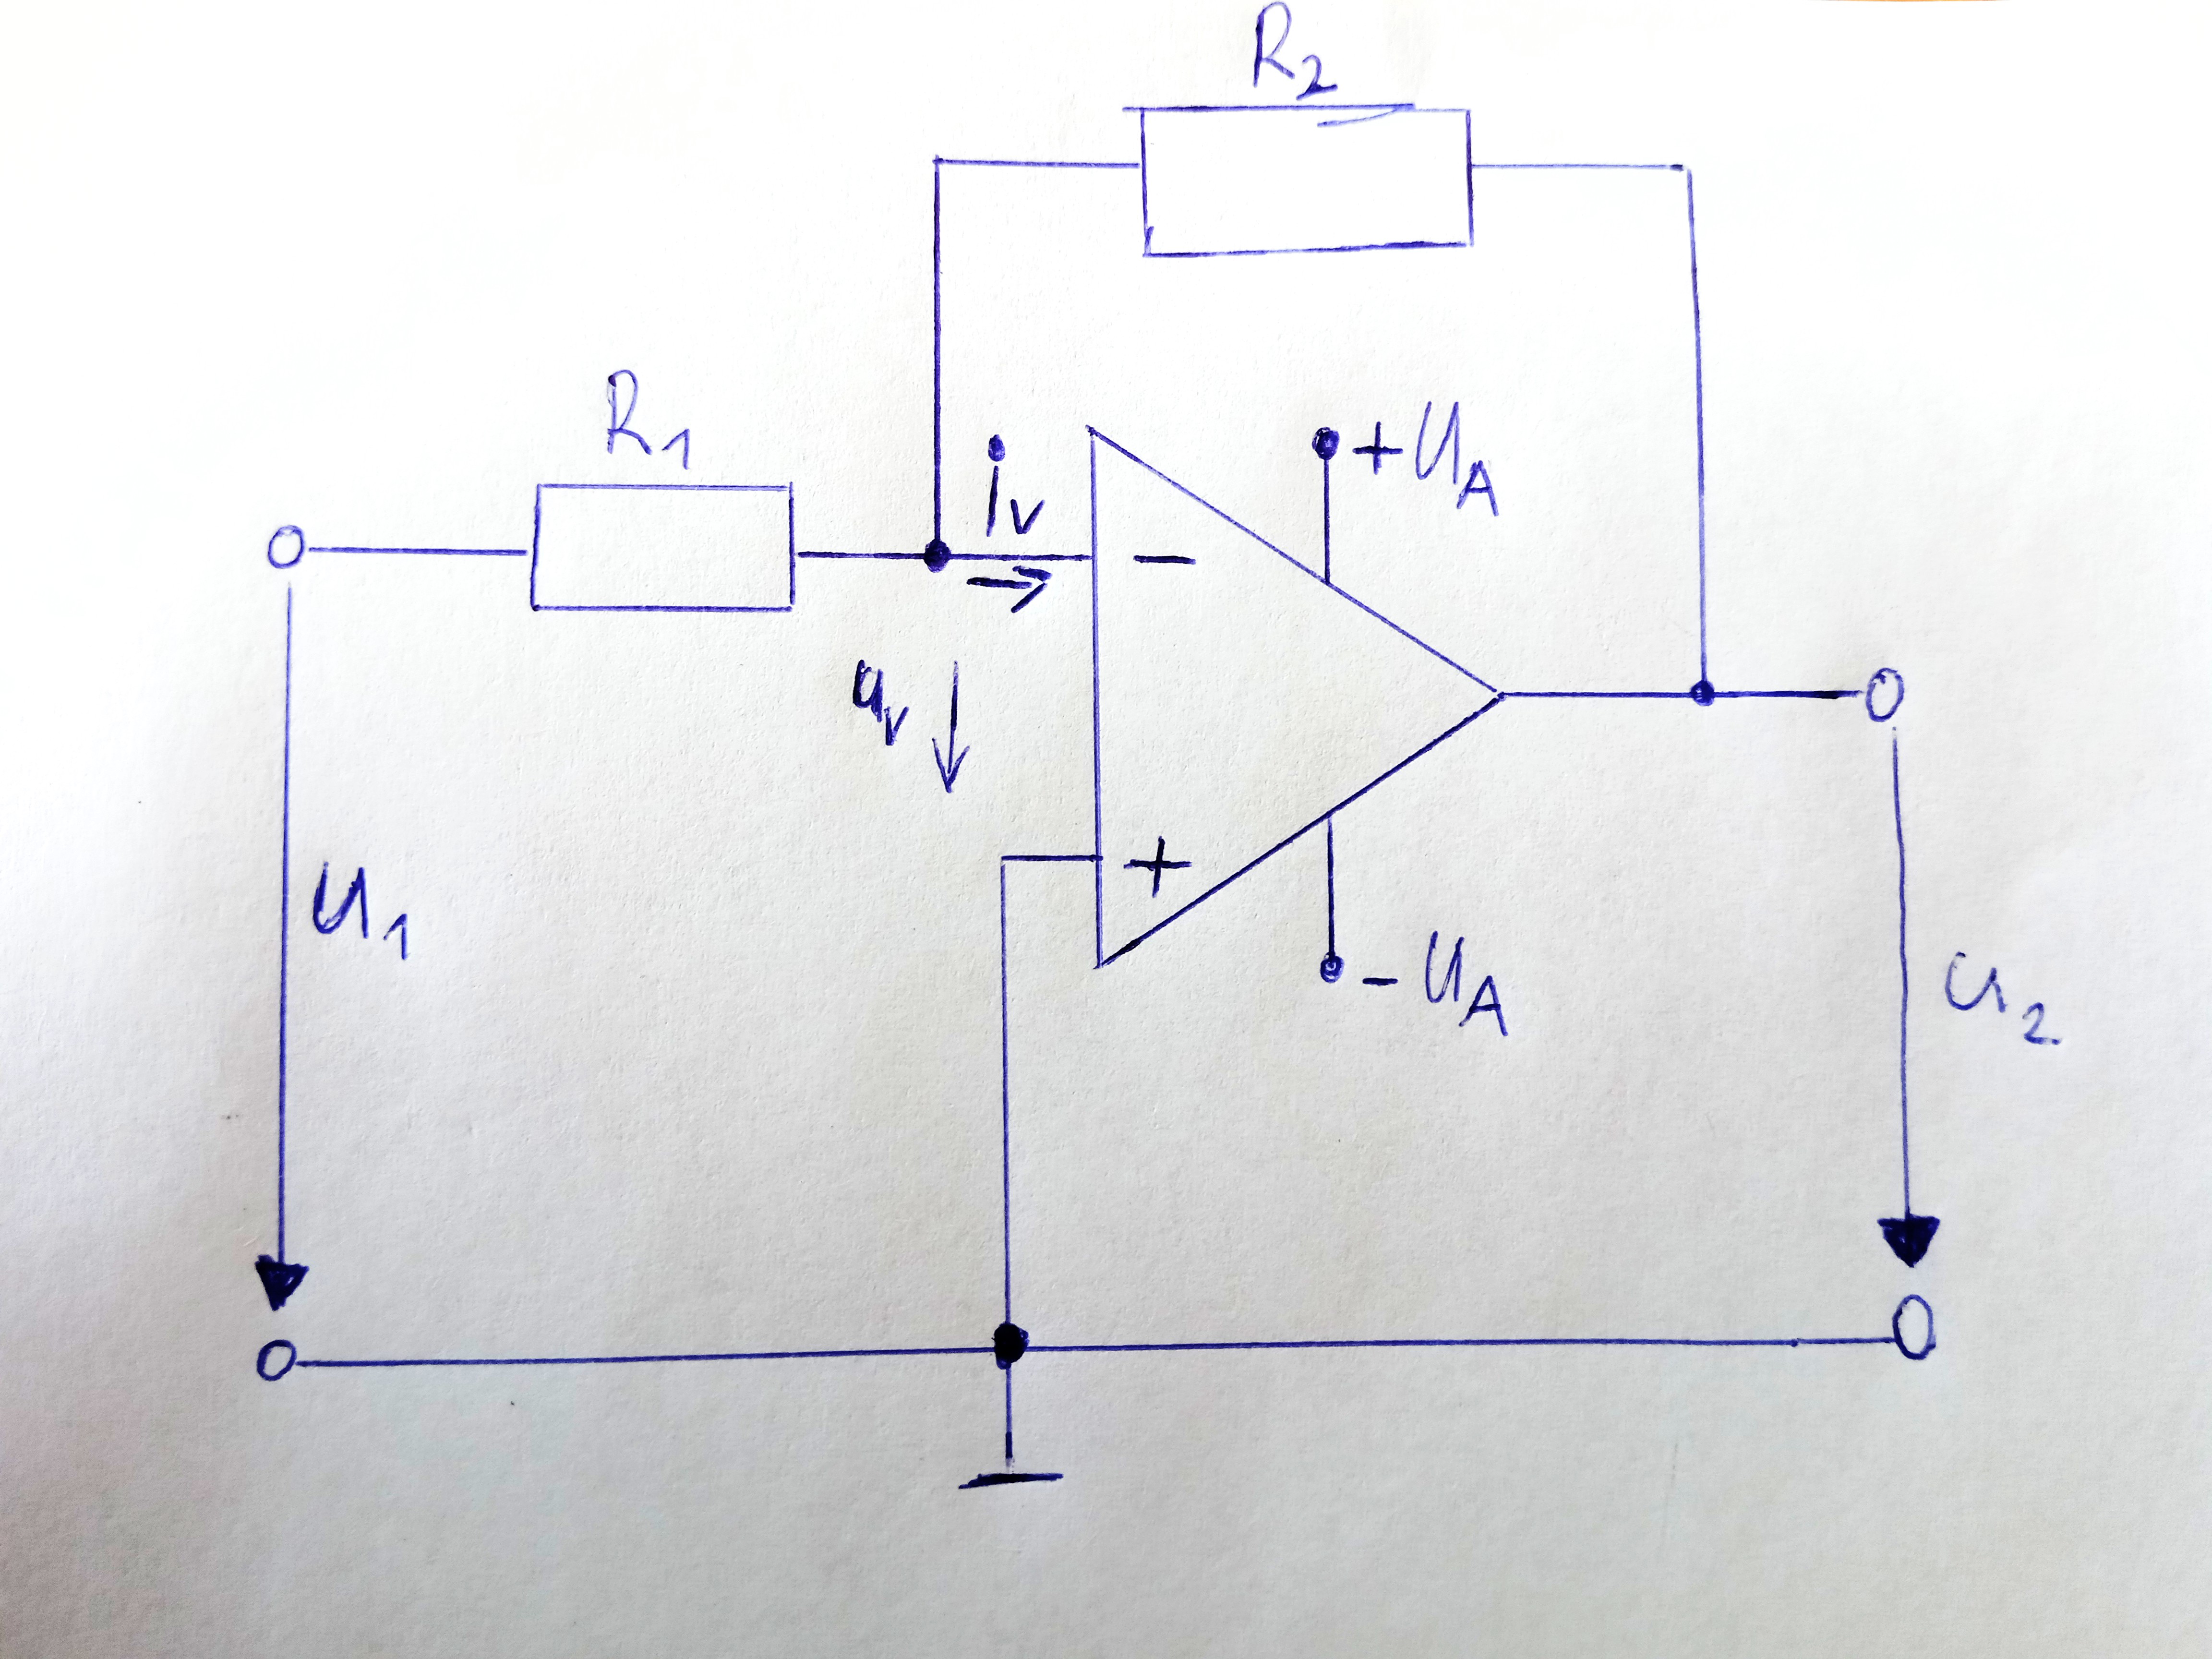 R2
R1
iv
+UA
−
uv
+
U1
-UA
u2